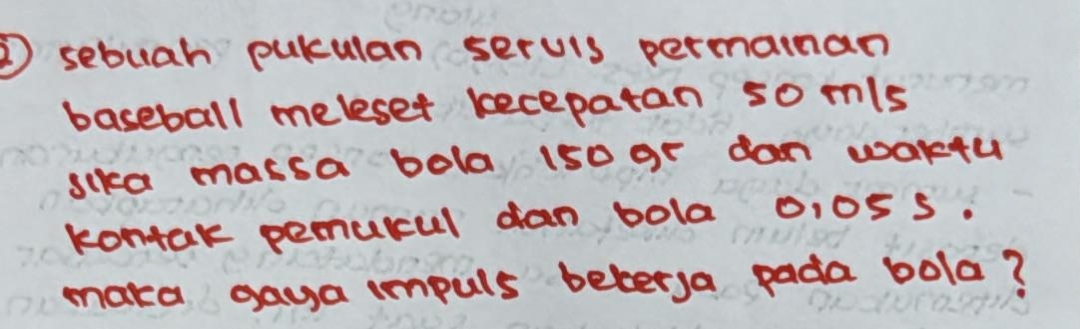 2) sebuah pukulan servis permainan
baseball meleset kecepatan 50 m/s
jika massa bola 150 gr dan waktu
kontak pemukul dan bola 0,05 s.
maka gaya impuls bekerja pada bola?